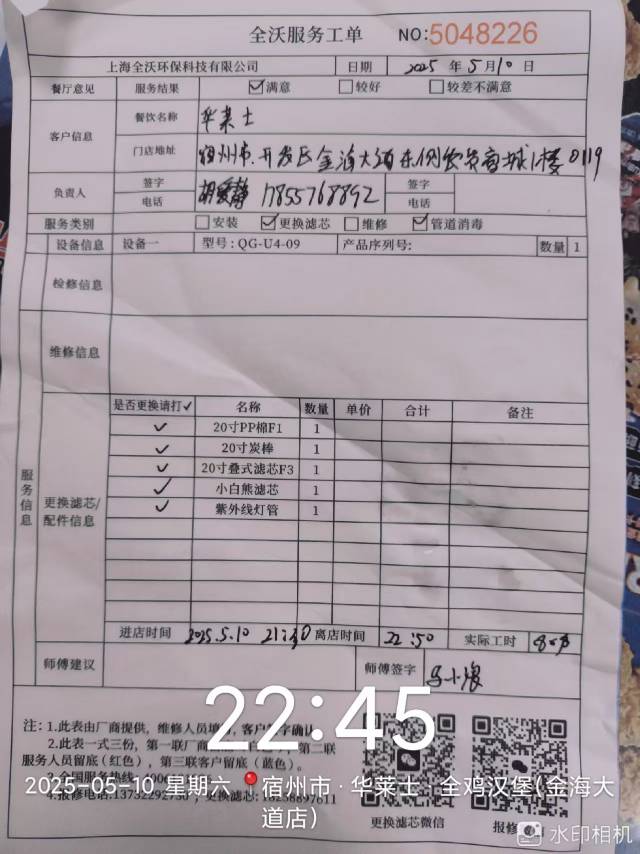 全沃服务工单 NO:5048226
上海全沃环保科技有限公司 日期 2025 年 5 月 10 日
餐厅意见 服务结果 ☑满意 □较好 □较差不满意
客户信息 餐饮名称 华莱士
门店地址 宿州市开发区金海大道东侧 商城1楼0119
负责人 签字 电话 胡爱静 17855768892 签字 电话
服务类别 □安装 ☑更换滤芯 □维修 ☑管道消毒
设备信息 设备一 型号:QG-U4-09 产品序列号: 数量 1
检修信息
维修信息
服务信息
更换滤芯/配件信息
是否更换请打✓ 名称 数量 单价 合计 备注
✓ 20寸PP棉F1 1
✓ 20寸炭棒 1
✓ 20寸叠式滤芯F3 1
✓ 小白熊滤芯 1
✓ 紫外线灯管 1
进店时间 2025.5.10 21: 离店时间 22:50 实际工时
师傅建议 师傅签字 马小浪
22:45
注:1.此表由厂商提供,维修人员填 ,客户 字确认
2.此表一式三份,第一联厂商 第二联
服务人员留底(红色),第三联客户留底(蓝色)。
3.全国服务热线: 4006
2025-05-10 星期六 宿州市·华莱士·全鸡汉堡(金海大道店)
4.报修电话:13732292738 ,更换滤芯:18258897611
更换滤芯微信 报修
水印相机